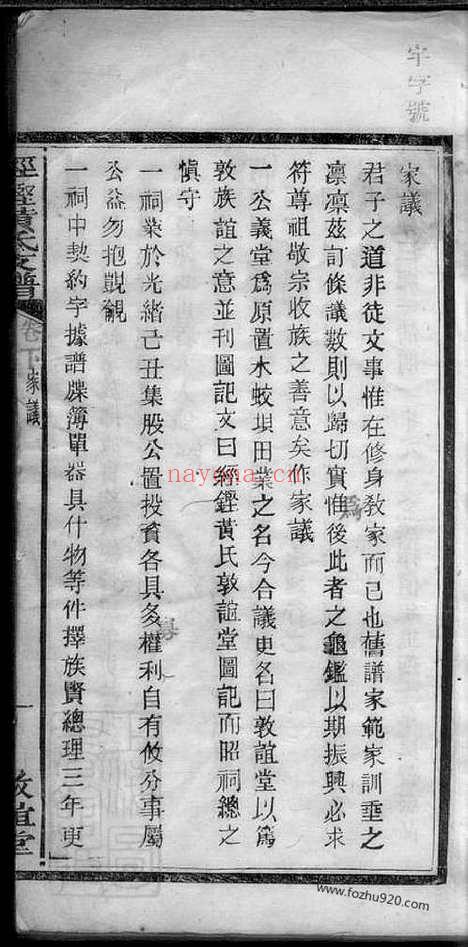 字號
家議
君子之道非徒文事惟在修身教家而已也舊譜家範家訓垂之
凛凛茲訂條議數則以歸切實惟後此者之龜鑑以期振興必求
符尊祖敬宗收族之善意矣作家議
一公義堂爲原置木蛟垻田業之名今合議更名曰敦誼堂以篤
敦族誼之意並刊圖記文曰經鏗黃氏敦誼堂圖記而昭祠總之
愼守
一祠業於光緒己丑集股公置投資各具多權利自有攸分事屬
公益勿抱覬覦
一祠中契約字據譜牒簿單器具什物等件擇族賢總理三年更
黃氏支譜
卷下家議
一
敦誼堂
nayona.cn
www.fozhu920.com